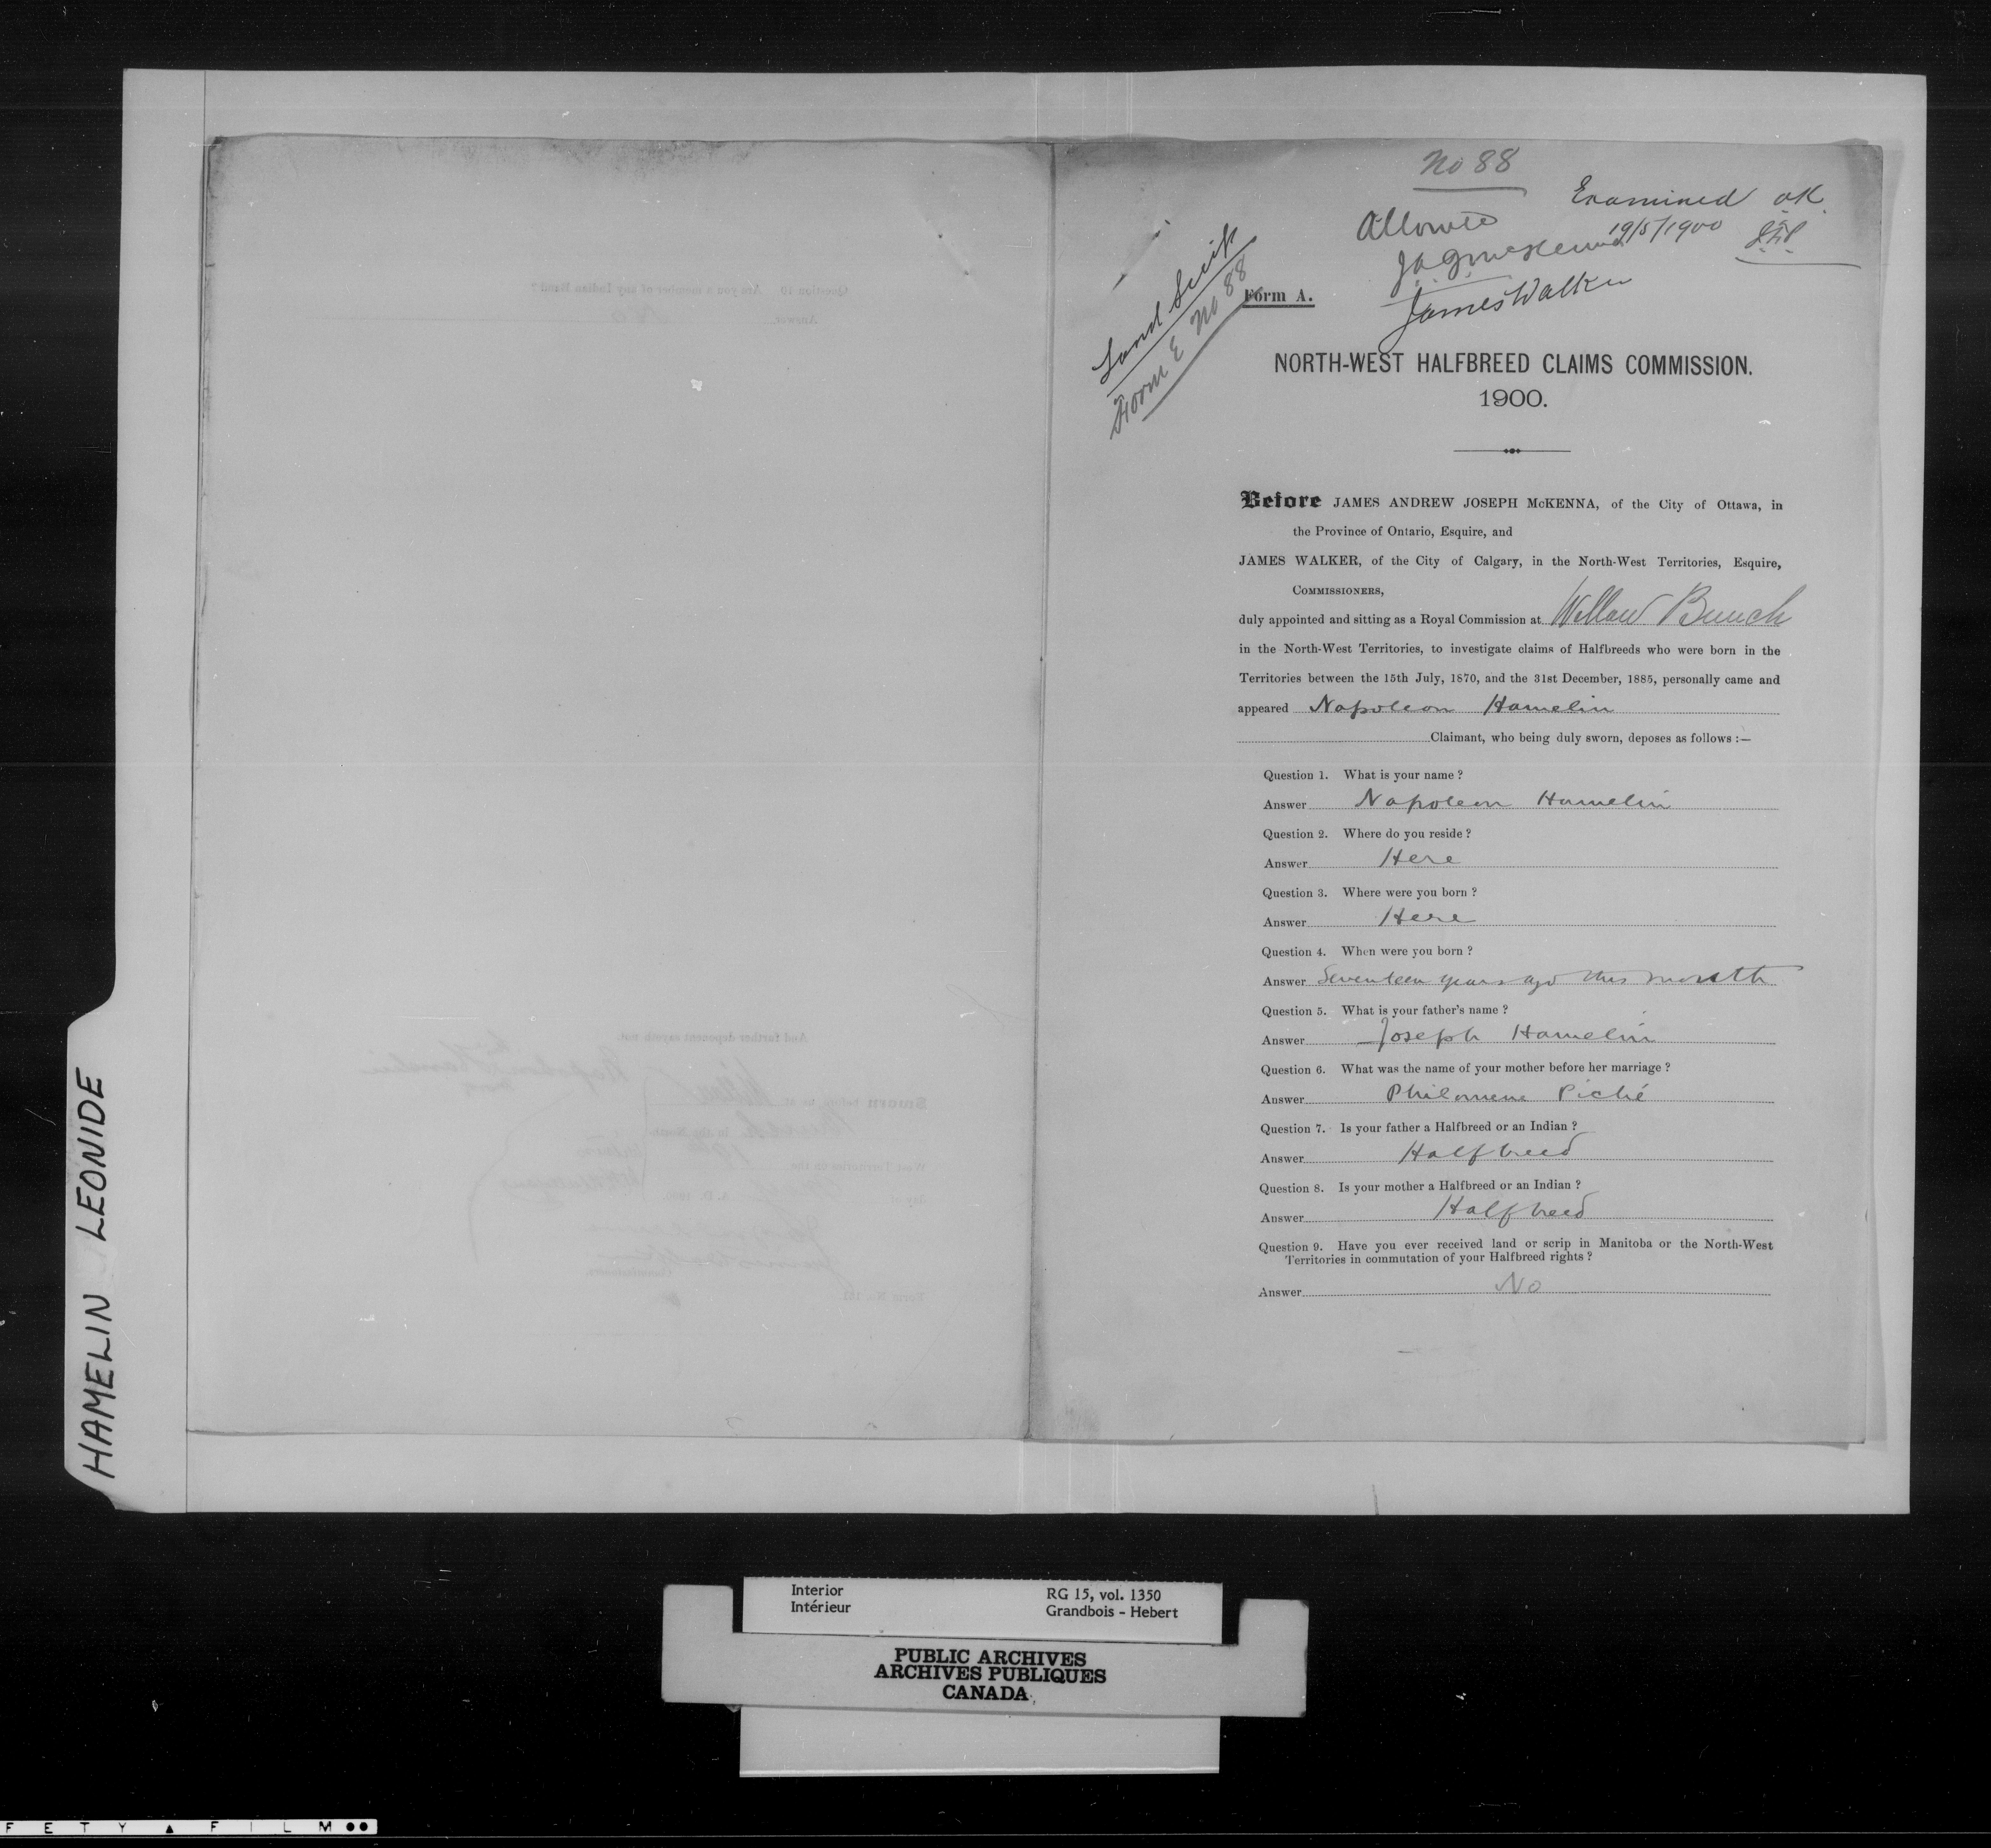 HAMELIN LEONIDE
No 88
Examined OK
19/5/1900
Allowed
James Walker
Land Scrip
Form E No 88
Form A.
NORTH-WEST HALFBREED CLAIMS COMMISSION.
1900.
Before JAMES ANDREW JOSEPH McKENNA, of the City of Ottawa, in
the Province of Ontario, Esquire, and
JAMES WALKER, of the City of Calgary, in the North-West Territories, Esquire,
COMMISSIONERS,
duly appointed and sitting as a Royal Commission at Willow Bunch
in the North-West Territories, to investigate claims of Halfbreeds who were born in the
Territories between the 15th July, 1870, and the 31st December, 1885, personally came and
appeared Napoleon Hamelin
Claimant, who being duly sworn, deposes as follows :—
Question 1. What is your name ?
Answer Napoleon Hamelin
Question 2. Where do you reside ?
Answer Here
Question 3. Where were you born ?
Answer Here
Question 4. When were you born ?
Answer Seventeen years ago this month
Question 5. What is your father's name ?
Answer Joseph Hamelin
Question 6. What was the name of your mother before her marriage ?
Answer Philomene Piché
Question 7. Is your father a Halfbreed or an Indian ?
Answer Halfbreed
Question 8. Is your mother a Halfbreed or an Indian ?
Answer Halfbreed
Question 9. Have you ever received land or scrip in Manitoba or the North-West
Territories in commutation of your Halfbreed rights ?
Answer No
Question 10 Are you a member of any Indian Band ?
Answer No
And further deponent sayeth not.
Interior
Intérieur
RG 15, vol. 1350
Grandbois - Hebert
PUBLIC ARCHIVES
ARCHIVES PUBLIQUES
CANADA
F E T Y ▲ F I L M ●●